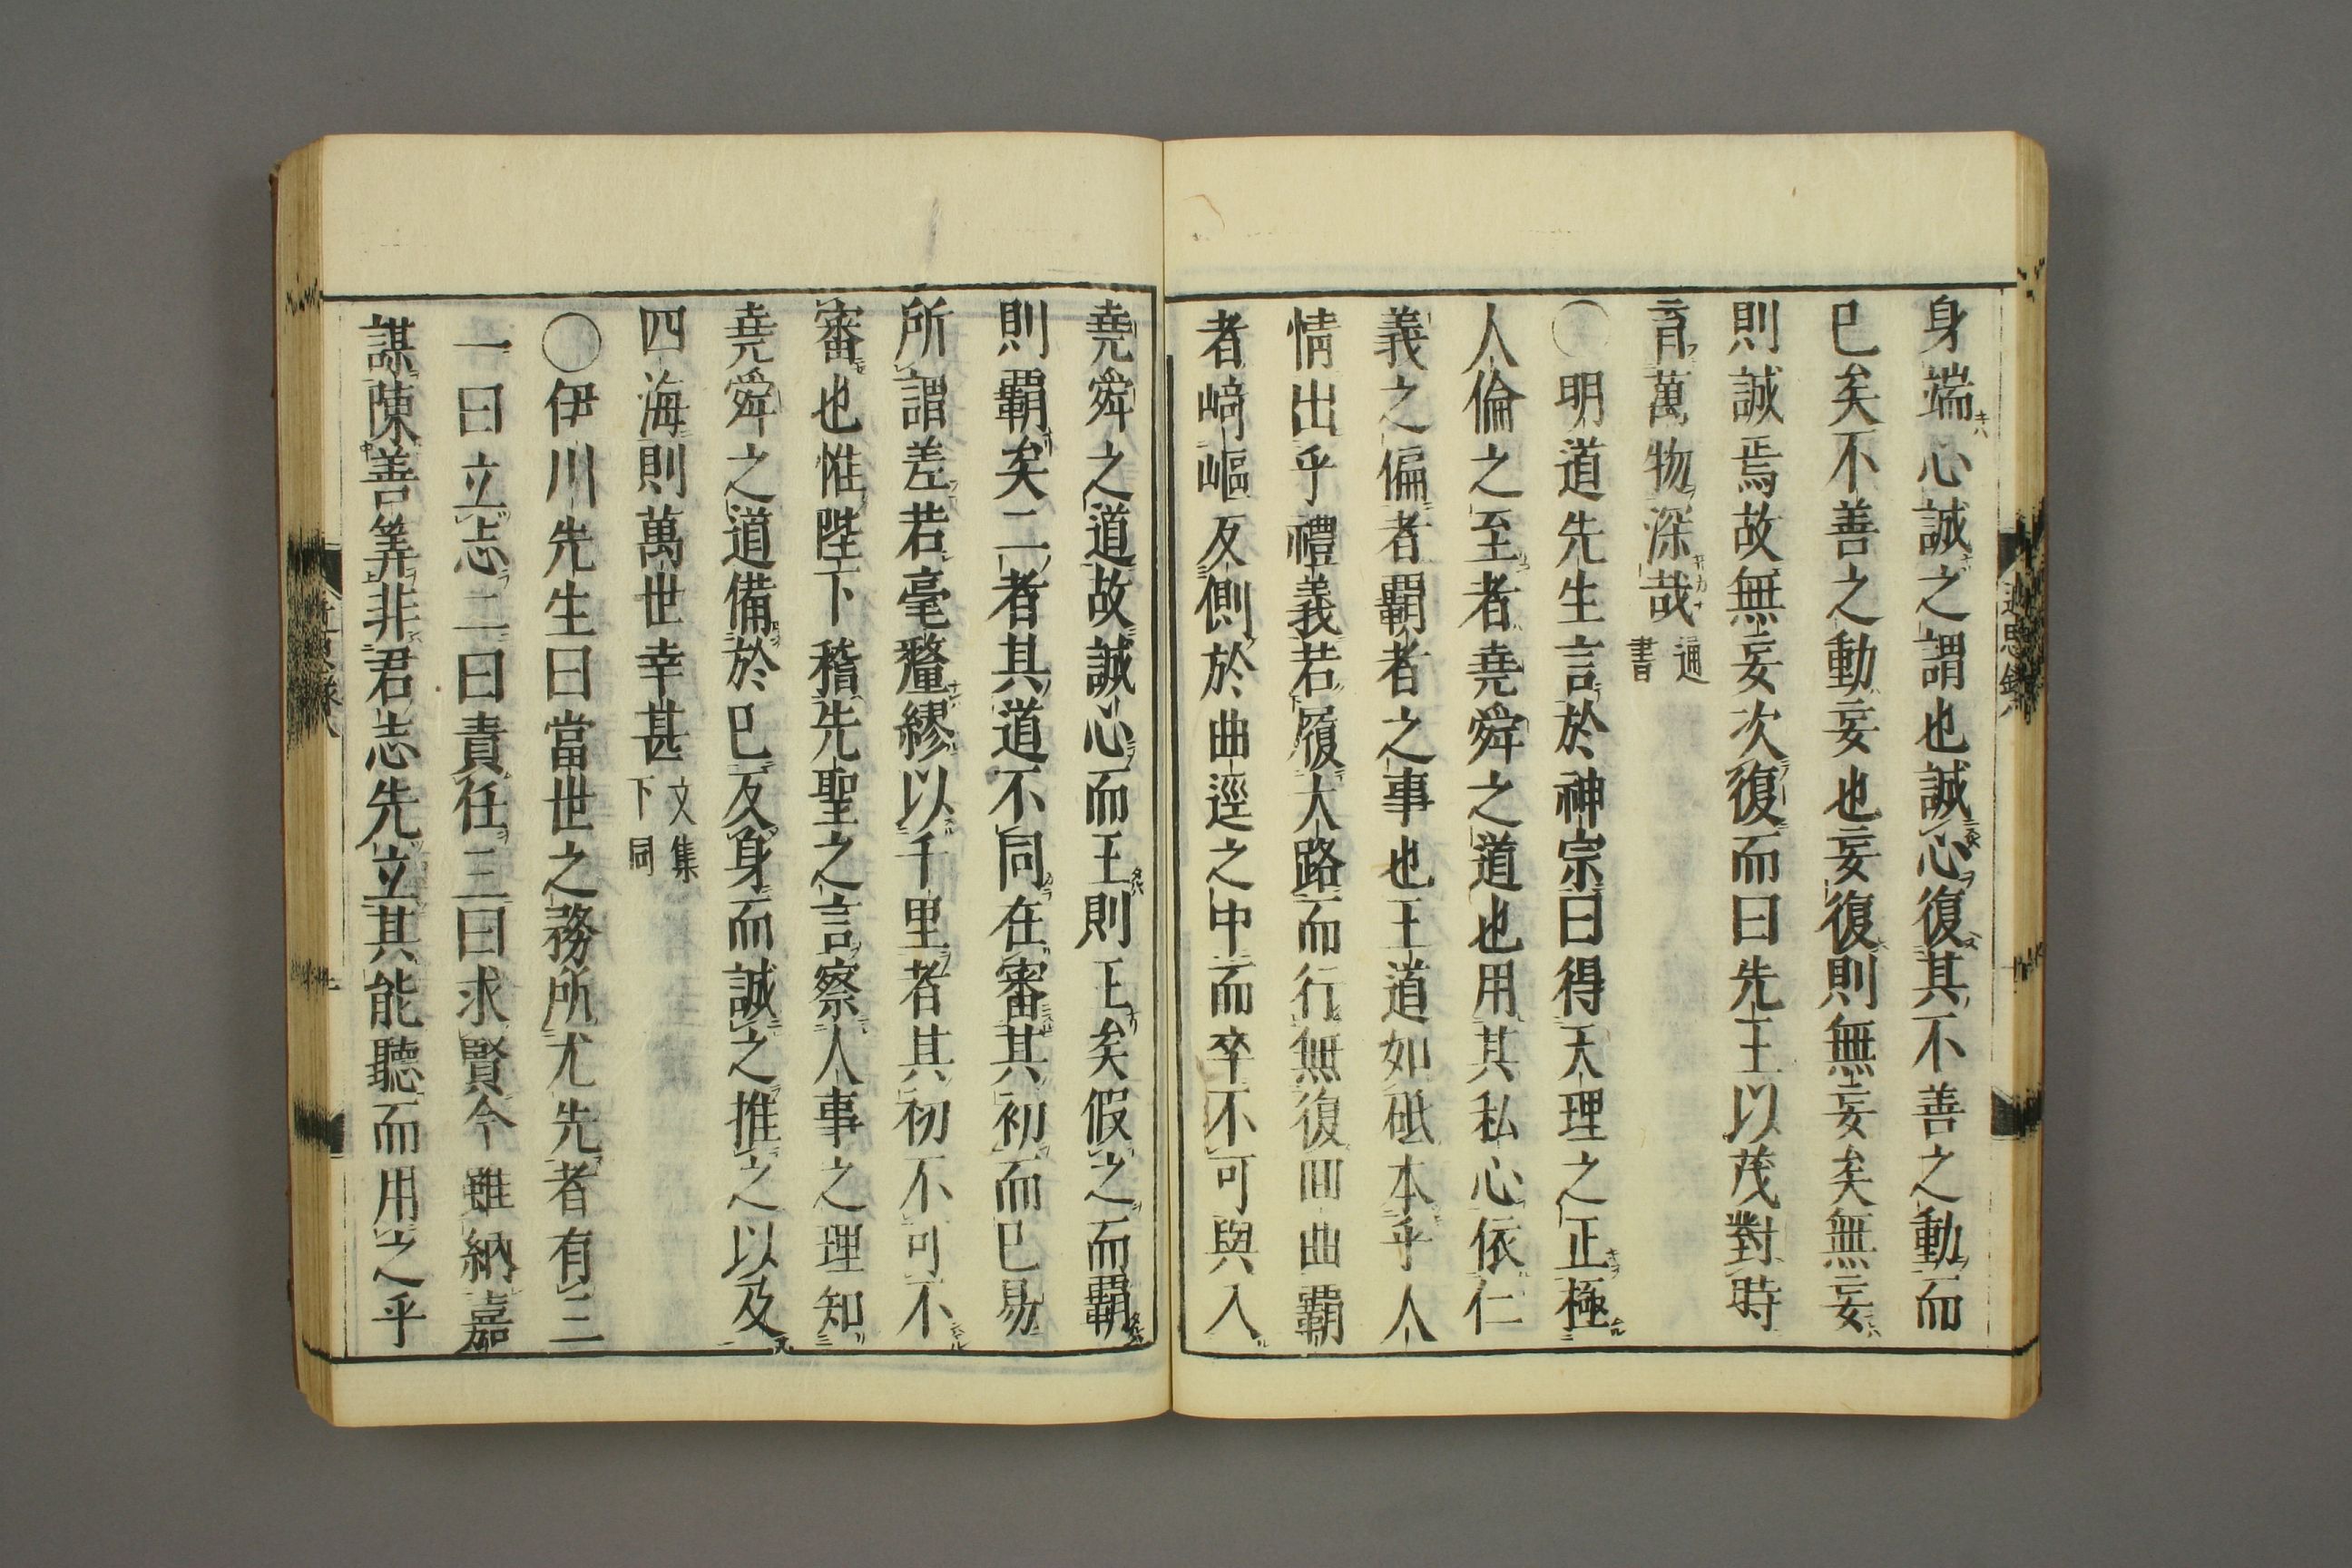 身端心誠之謂也誠心復其不善之動而
已矣不善之動妄也妄復則無妄矣無妄
則誠焉故無妄次復而曰先王以茂對時
育萬物深哉通書
○明道先生言於神宗曰得天理之正極
人倫之至者堯舜之道也用其私心依仁
義之偏者覇者之事也王道如砥本乎人
情出乎禮義若履大路而行無復回曲覇
者﨑嶇反側於曲逕之中而卒不可與入
堯舜之道故誠心而王則王矣假之而覇
則覇矣二者其道不同在審其初而已易
所謂差若毫釐繆以千里者其初不可不
審也惟陛下稽先聖之言察人事之理知
堯舜之道備於已反身而誠之推之以及
四海則萬世幸甚文集下同
○伊川先生曰當世之務所尤先者有三
一曰立志二曰責任三曰求賢今雖納嘉
謀陳善筭非君志先立其能聽而用之乎